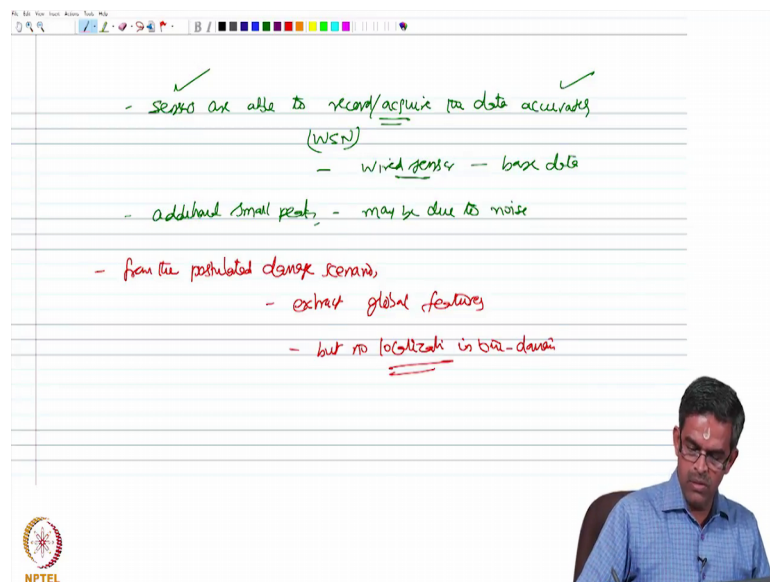 File Edit View Insert Actions Tools Help
B I
- senso are able to record/acquire the data accurately
(WSN)
- wired sensor - base data
- additional small peaks, - may be due to noise
- from the postulated damage scenario,
- extract global features
- but no localizati in time-domain
NPTEL